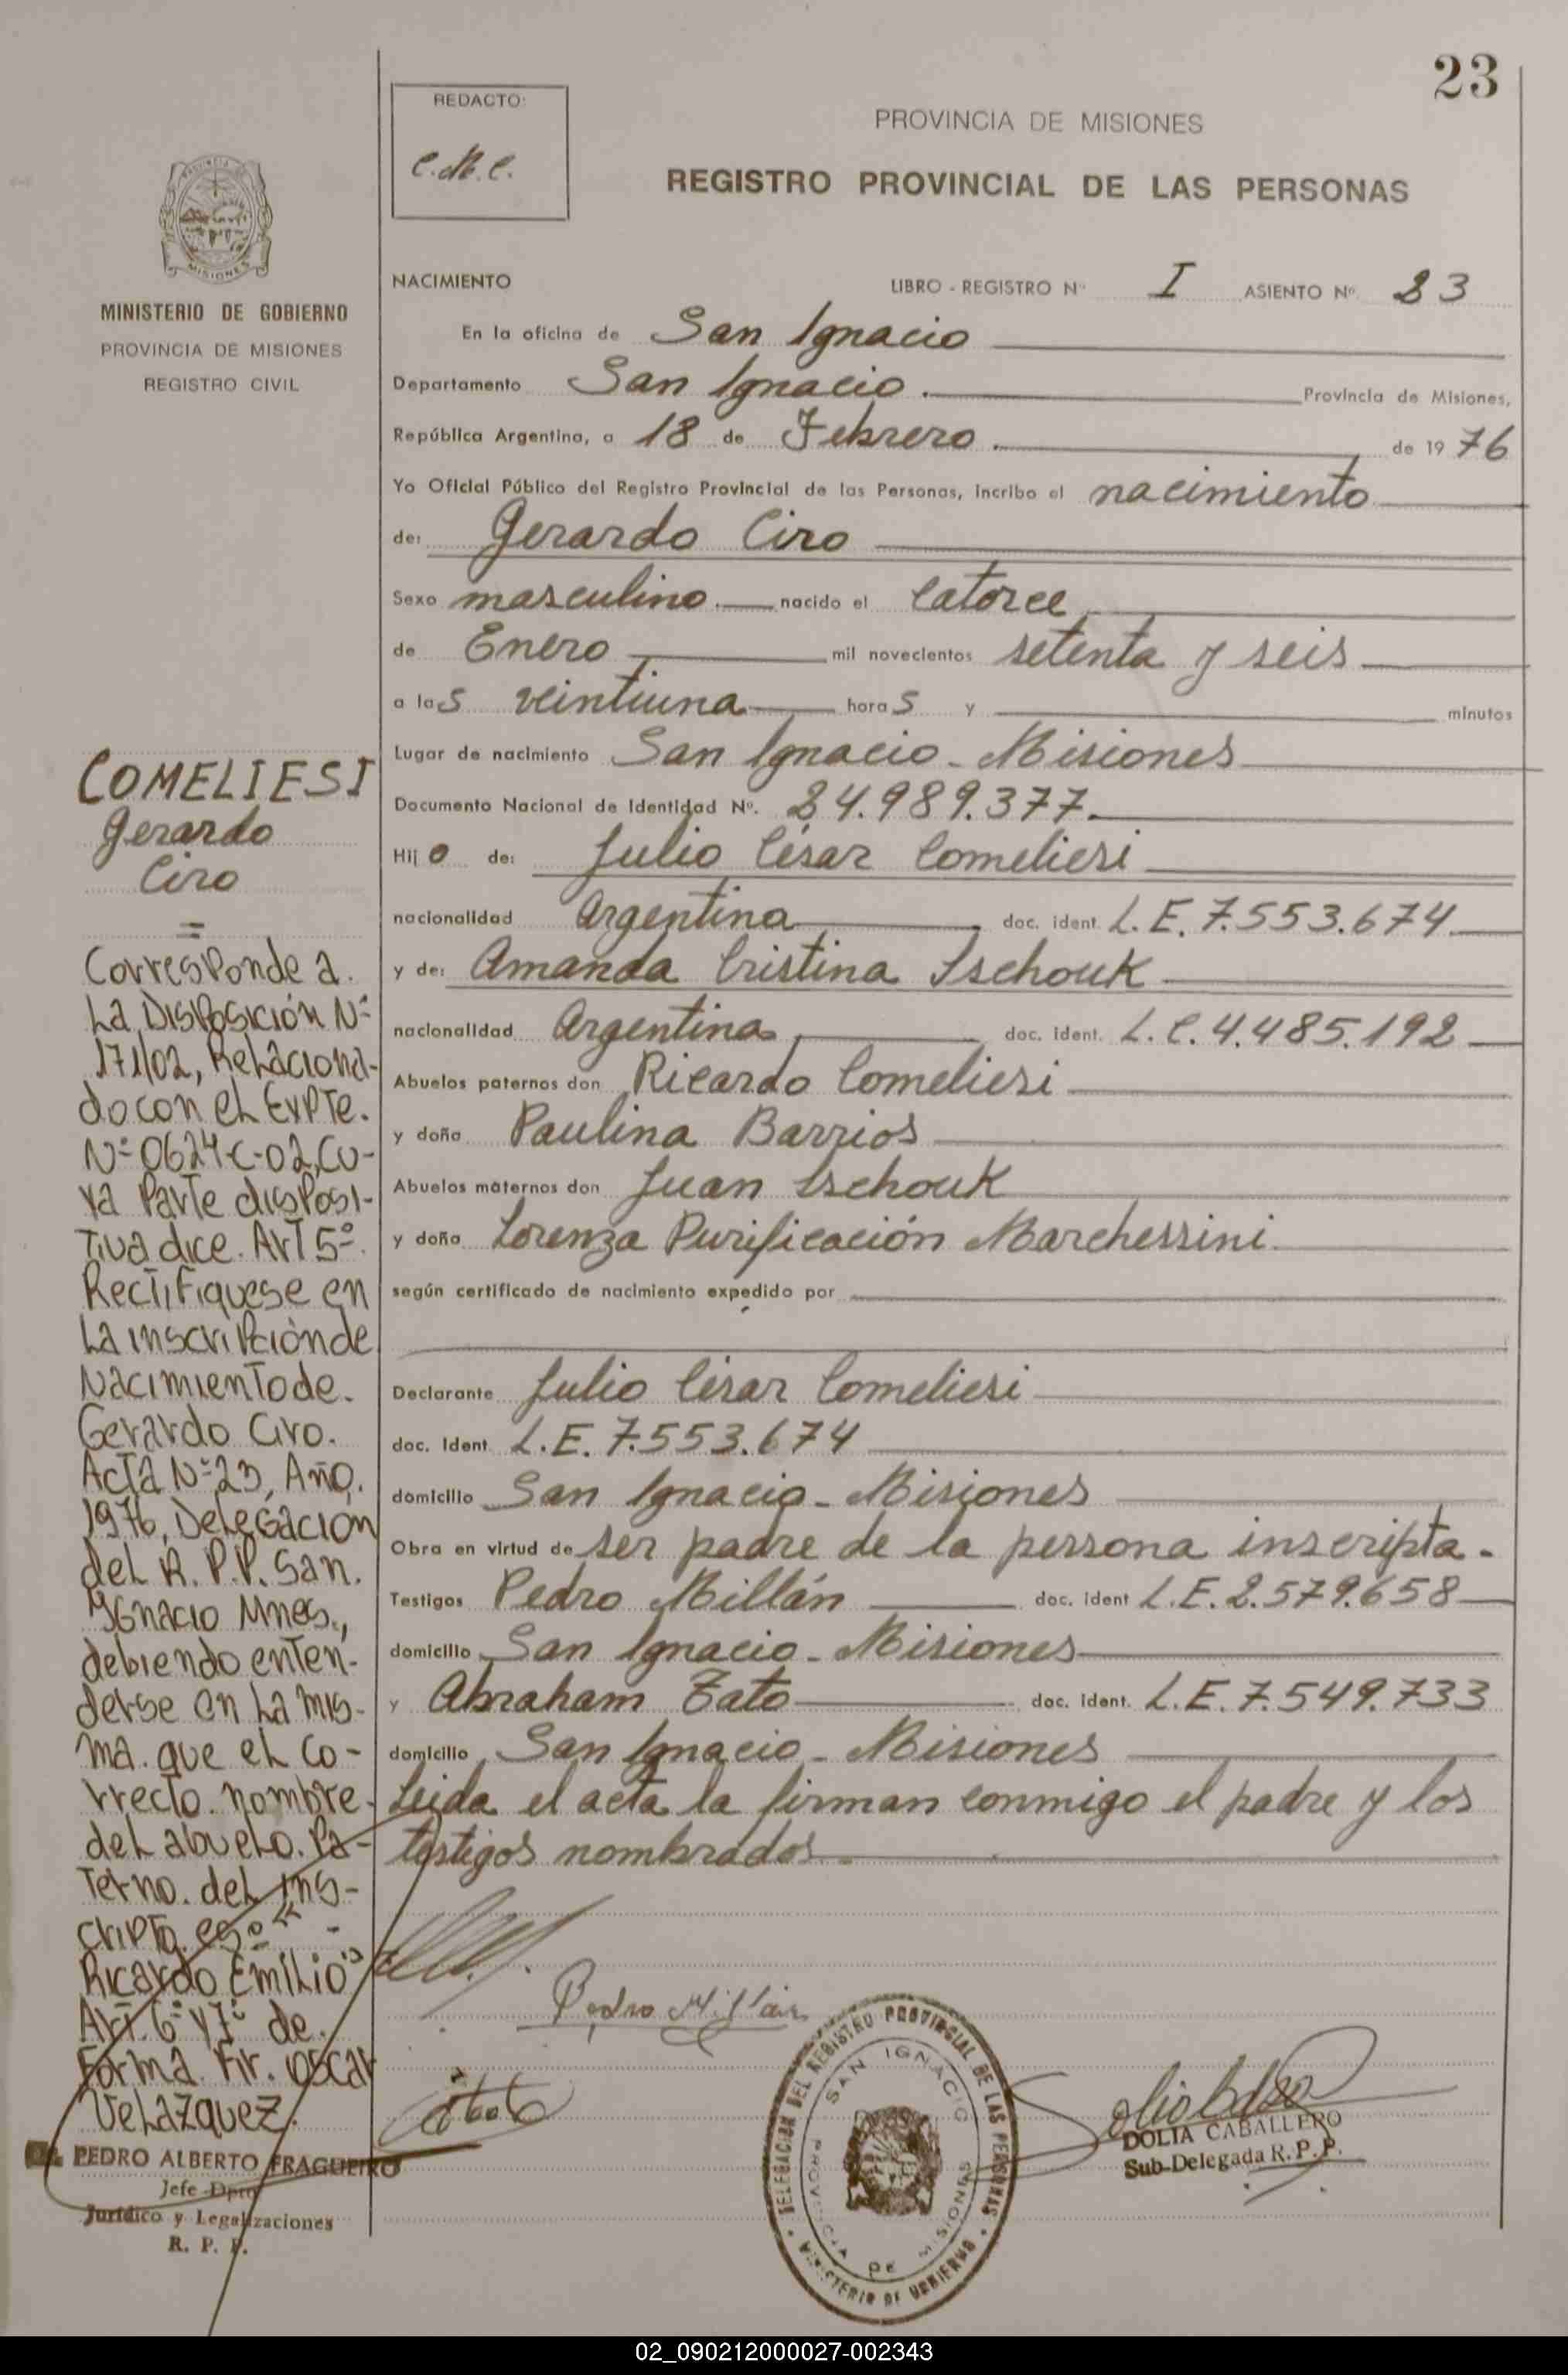 23
REDACTO:
C.M.C.
PROVINCIA DE MISIONES
REGISTRO PROVINCIAL DE LAS PERSONAS
MISIONES
MINISTERIO DE GOBIERNO
PROVINCIA DE MISIONES
REGISTRO CIVIL
NACIMIENTO LIBRO - REGISTRO Nº I ASIENTO Nº 23
En la oficina de San Ignacio
Departamento San Ignacio. Provincia de Misiones,
República Argentina, a 18 de Febrero. de 1976
Yo Oficial Público del Registro Provincial de las Personas, incribo el nacimiento
de: Gerardo Ciro
Sexo masculino. nacido el catorce
de Enero mil novecientos setenta y seis
a las veintiuna horas y minutos
Lugar de nacimiento San Ignacio - Misiones
Documento Nacional de Identidad Nº. 24.989.377.
Hijo de: Julio César Comeliesi
nacionalidad Argentina doc. ident. L.E. 7.553.674
y de: Amanda Cristina Ischouk
nacionalidad Argentina doc. ident. L.C. 4.485.192
Abuelos paternos don Ricardo Comeliesi
y doña Paulina Barrios
Abuelos maternos don Juan Ischouk
y doña Lorenza Purificación Marchessini.
según certificado de nacimiento expedido por
Declarante Julio César Comeliesi
doc. Ident. L.E. 7.553.674
domicilio San Ignacio - Misiones
Obra en virtud de ser padre de la persona inscripta.
Testigos Pedro Millán doc. ident L.E. 2.579.658
domicilio San Ignacio - Misiones
y Abraham Tato doc. ident. L.E. 7.549.733
domicilio San Ignacio - Misiones
Leida el acta la firman conmigo el padre y los
testigos nombrados.
COMELIESI
Gerardo
Ciro
=
Corresponde a.
La Disposición Nº
171/02, Relaciona-
do con el Expte.
Nº 0624-C-02, Cu-
ya Parte disposi-
tiva dice. Art 5º.
Rectifiquese en
La inscripción de
Nacimiento de.
Gerardo Ciro.
Acta Nº 23, Año.
1976, Delegación
del R.P.P. San.
Ignacio Mnes.,
debiendo enten-
derse en La mis-
ma. que el co-
rrecto. nombre.
del abuelo. Pa-
terno. del ins-
cripto. es: "
Ricardo Emilio"
Art. 6º y 7º de.
Forma. Fir. Oscar
Velázquez.
PEDRO ALBERTO FRAGUEIRO
Jefe Dpto
Jurídico y Legalizaciones
R. P. P.
Pedro Millán
DELEGACION DEL REGISTRO PROVINCIAL DE LAS PERSONAS
SAN IGNACIO
PROVINCIA DE MISIONES
MINISTERIO DE GOBIERNO
DOLIA CABALLERO
Sub-Delegada R. P. P.
02_090212000027-002343